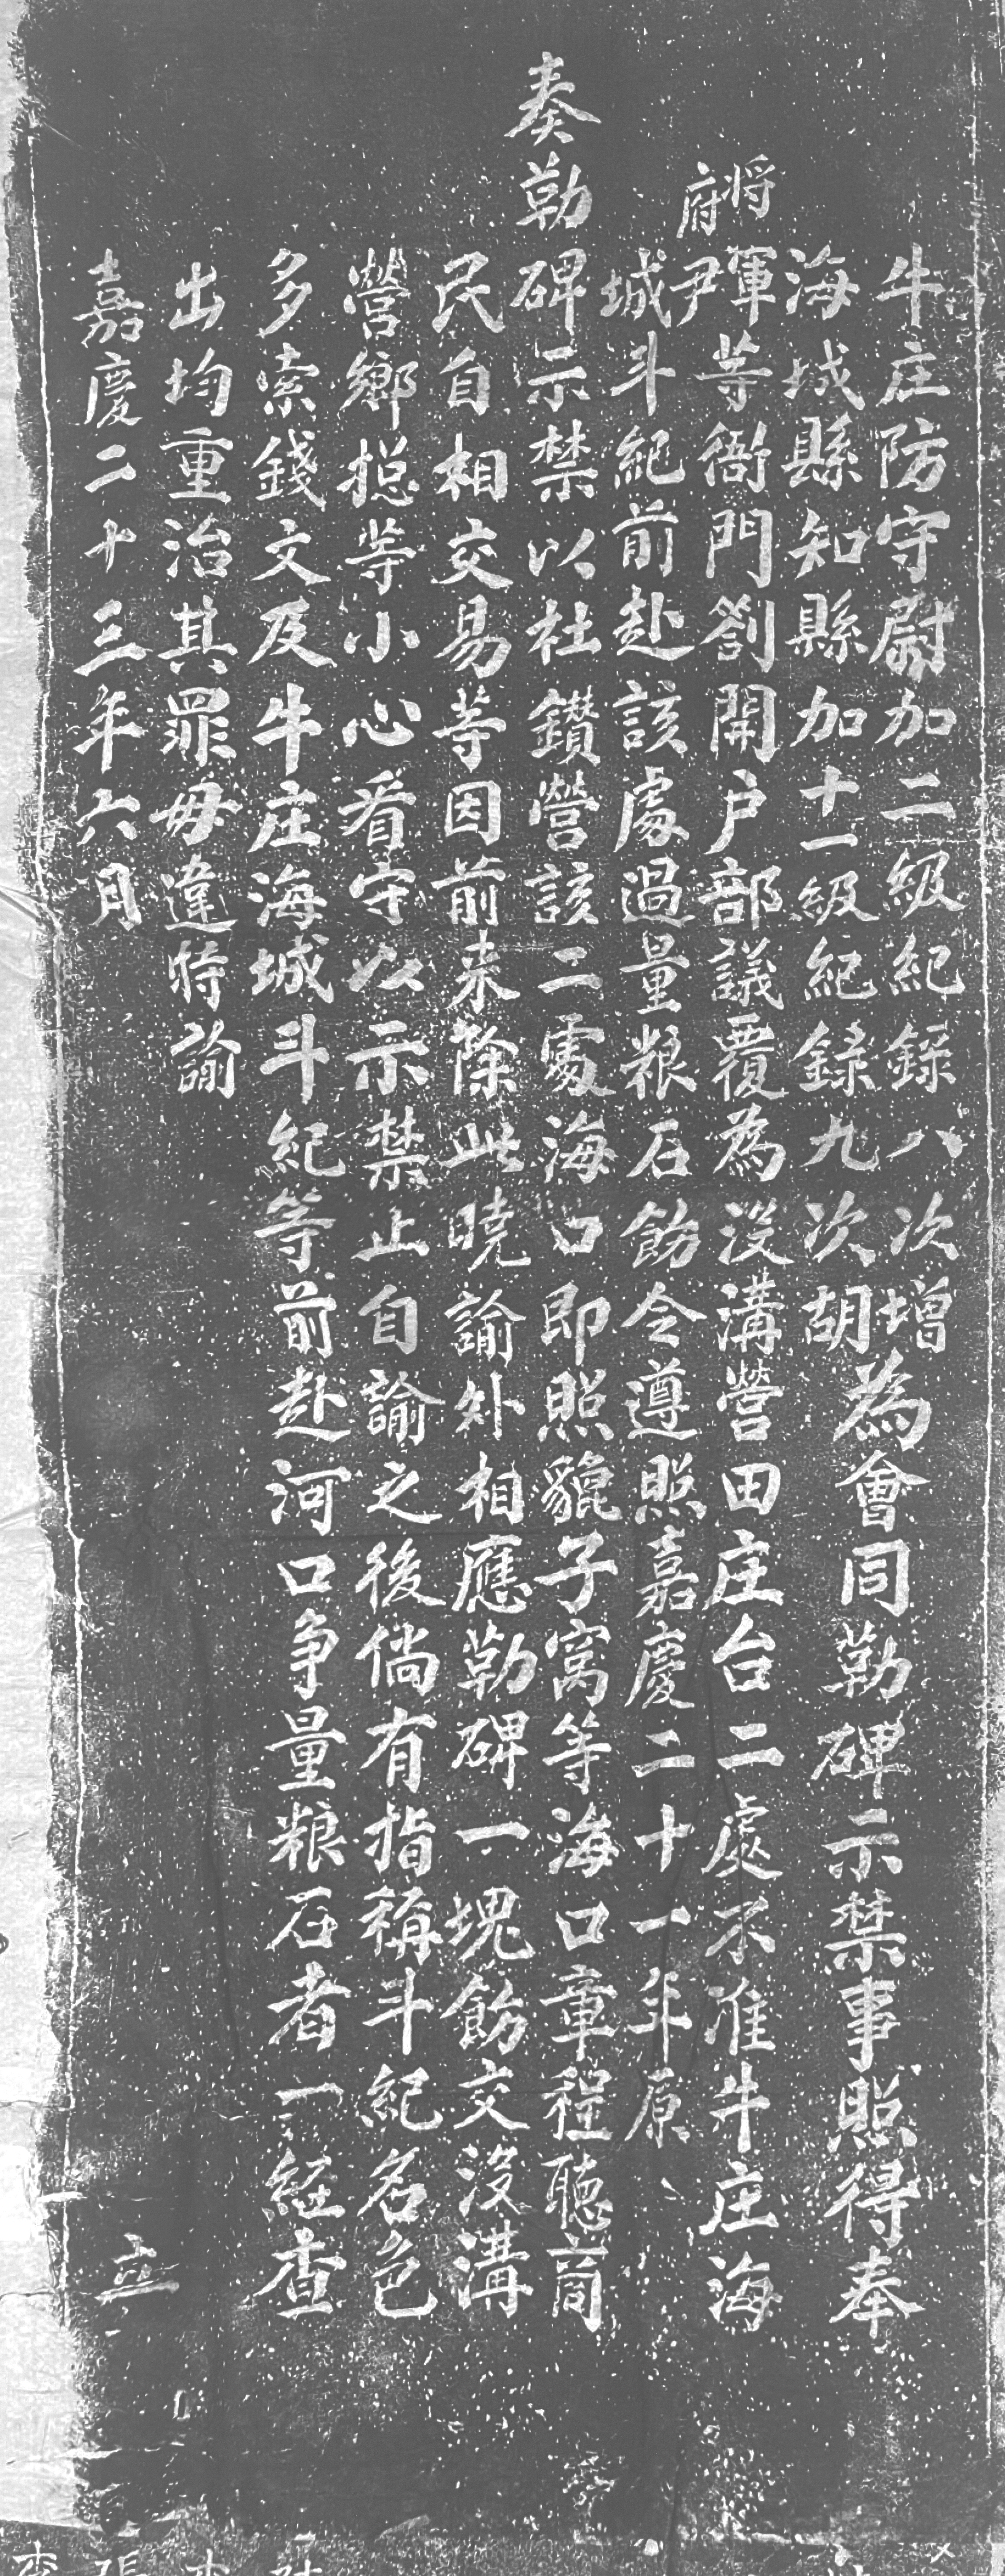 牛庄防守尉加二級紀錄八次增
海城縣知縣加十一級紀錄九次胡
為會同勒碑示禁事照得奉
将軍
府尹
等衙門劄開户部議覆為没溝營田庄台二處不准牛庄海
城斗紀前赴該處過量粮石飭令遵照嘉慶二十一年原
奏勒碑示禁以杜鑽營該二處海口即照貔子窩等海口章程聽商
民自相交易等因前来除此曉諭外相應勒碑一塊飭交没溝
營鄉捴等小心看守以示禁止自諭之後倘有指稱斗紀名色
多索錢文及牛庄海城斗紀等前赴河口争量粮石者一經查
出均重治其罪毋違特諭
嘉慶二十三年六月 立